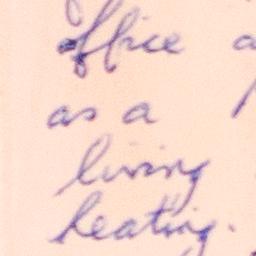 office a
as a
living
heating.